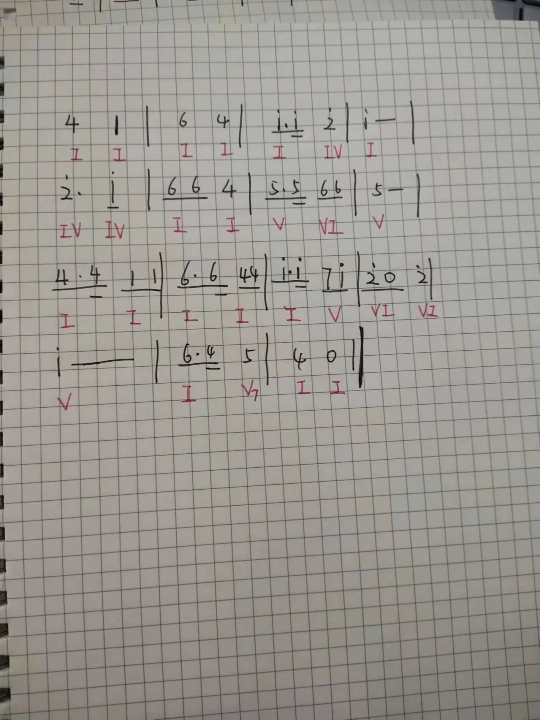 4 1 | 6 4 | i·i 2̇ | i — |
I I I I I IV I
2̇· i | 6 6 4 | 5·5 66 | 5 — |
IV IV I I V VI V
4·4 1 1 | 6·6 44 | i·i 7i | 2̇ 0 2̇ |
I I I I I V VI VI
i — | 6·4 5 | 4 0 ||
V I V7 I I